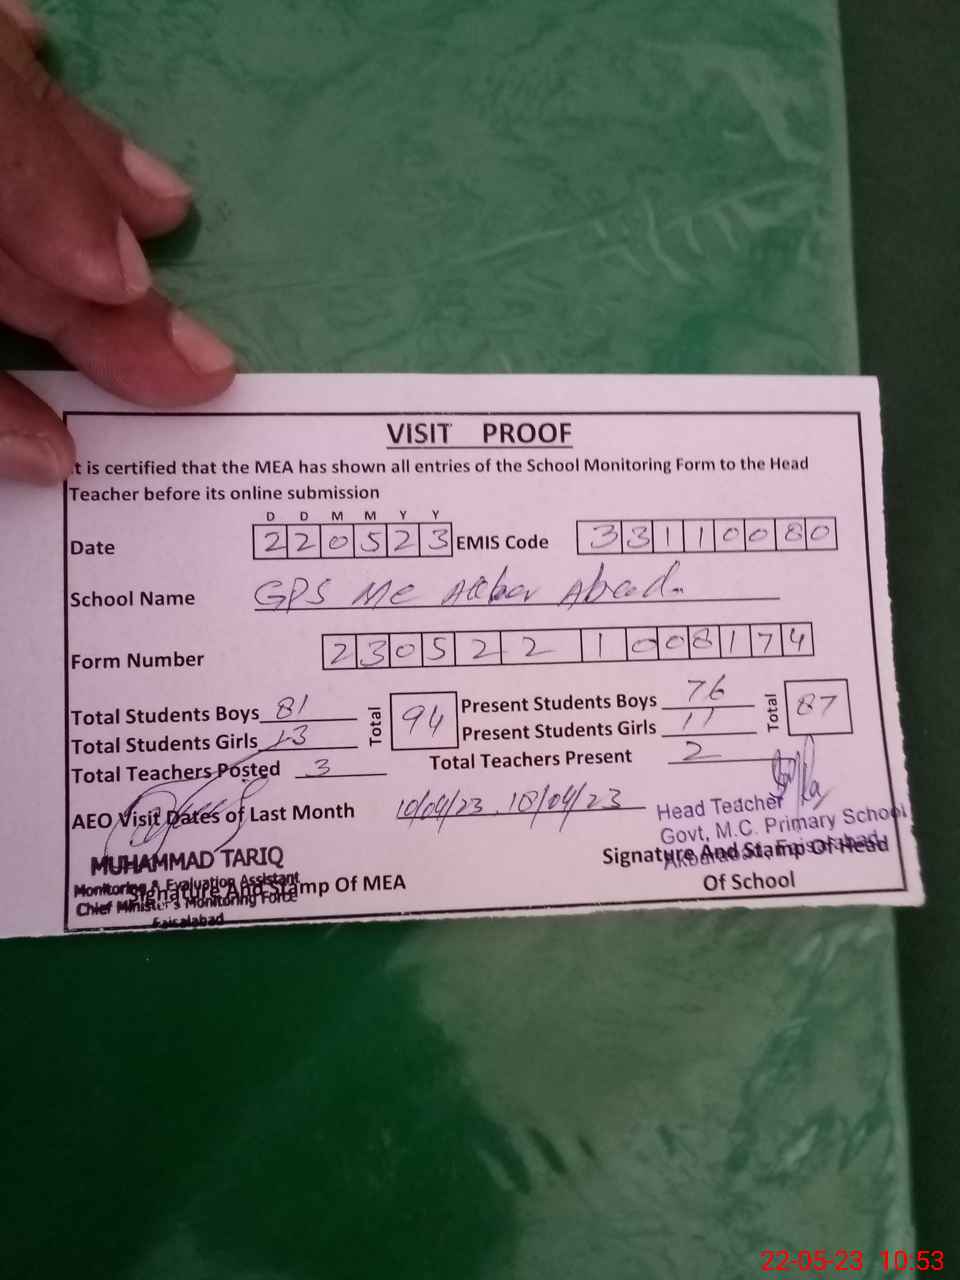 VISIT PROOF
It is certified that the MEA has shown all entries of the School Monitoring Form to the Head
Teacher before its online submission
D D M M Y Y
Date 2 2 0 5 2 3 EMIS Code 3 3 1 1 0 0 8 0
School Name GPS MC Akbar Abad.
Form Number 2 3 0 5 2 2 1 0 0 8 1 7 4
Total Students Boys 81 Total 94 Present Students Boys 76 Total 87
Total Students Girls 13 Present Students Girls 11
Total Teachers Posted 3 Total Teachers Present 2
AEO Visit Dates of Last Month 10/04/23, 18/04/23
Head Teacher
Govt, M.C. Primary School
Akbarabad, Faisalabad
Signature And Stamp Of Head
Of School
MUHAMMAD TARIQ
Monitoring & Evaluation Assistant
Chief Minister's Monitoring Force
Faisalabad
Signature And Stamp Of MEA
22-05-23 10:53